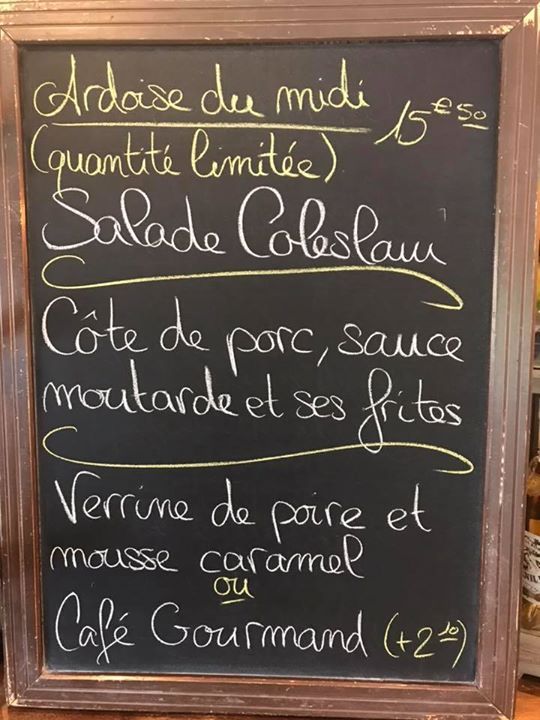 Ardoise du midi 15€50
(quantité limitée)
Salade Coleslaw
Côte de porc, sauce
moutarde et ses frites
Verrine de poire et
mousse caramel
ou
Café Gourmand (+2 10)